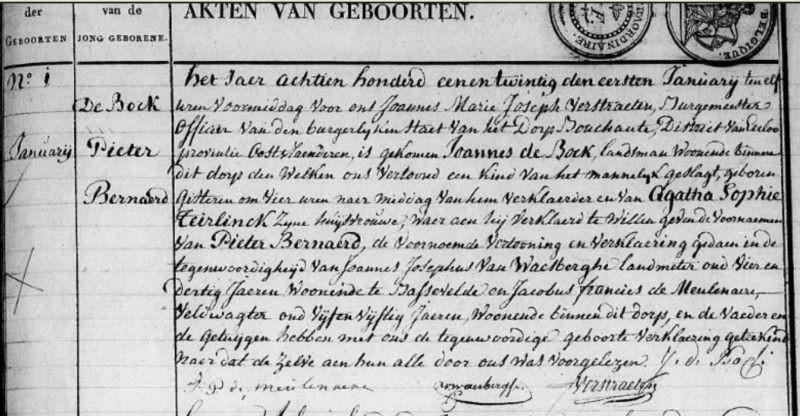 der
GEBOORTEN.
van de
JONG GEBORENE.
AKTEN VAN GEBOORTEN.
RAORDINAIRE.
BELGIQUE.
N.o 1
Januarij
De Bock
Pieter
Bernaerd
Het Jaer achtien honderd eenentwintig den eersten Januarij ten elf
uren voormiddag voor ons Joannes Marie Joseph Verstraeten, Burgemeester
officier van den burgerlyken Staet van het Dorp Bouchaute, District van Eecloo
provintie Oostvlaenderen, is gekomen Joannes de Bock, landsman woonende binnen
dit dorp den welken ons vertoond een kind van het mannelyk geslagt, geboren
gisteren om vier uren naer middag van hem verklaerder en van Agatha Sophie
Teirlinck zyne huysvrouwe, waer aen hij verklaerd te willen geven de voornaemen
van Pieter Bernaerd, de voornoemde vertooning en verklaering gedaen in de
tegenwoordigheyd van Joannes Josephus Van Waesberghe landmeter oud vier en
dertig Jaeren woonende te Bassevelde en Jacobus francies de Meulenaere,
veldwagter oud vijfen vijftig Jaeren, woonende binnen dit dorp, en de vaeder en
de getuygen hebben met ons de tegenwoordige geboorte verklaering geteekend
naer dat de zelve aen hun alle door ons was voorgelezen.
J. d. Bock
J. d. meulenaere
Verstraeten